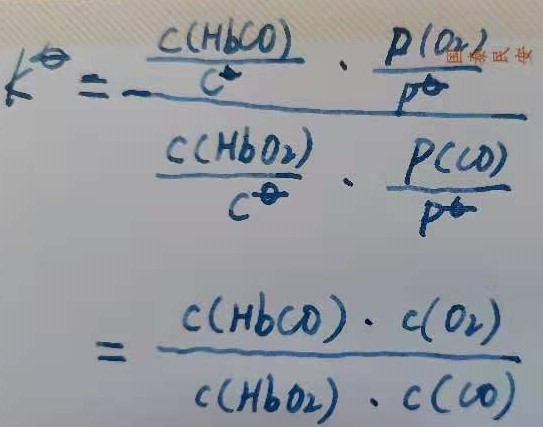 K^⊖ = \frac{\frac{c(HbCO)}{c^⊖} · \frac{p(O₂)}{p^⊖}}{\frac{c(HbO₂)}{c^⊖} · \frac{p(CO)}{p^⊖}}
= \frac{c(HbCO) · c(O₂)}{c(HbO₂) · c(CO)}
国泰民安